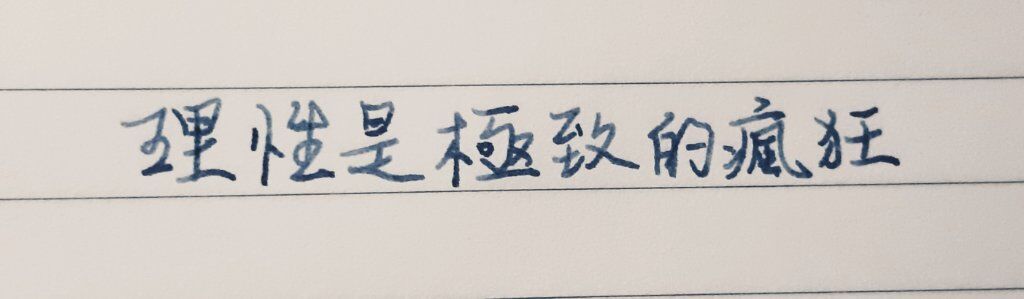 理性是極致的瘋狂